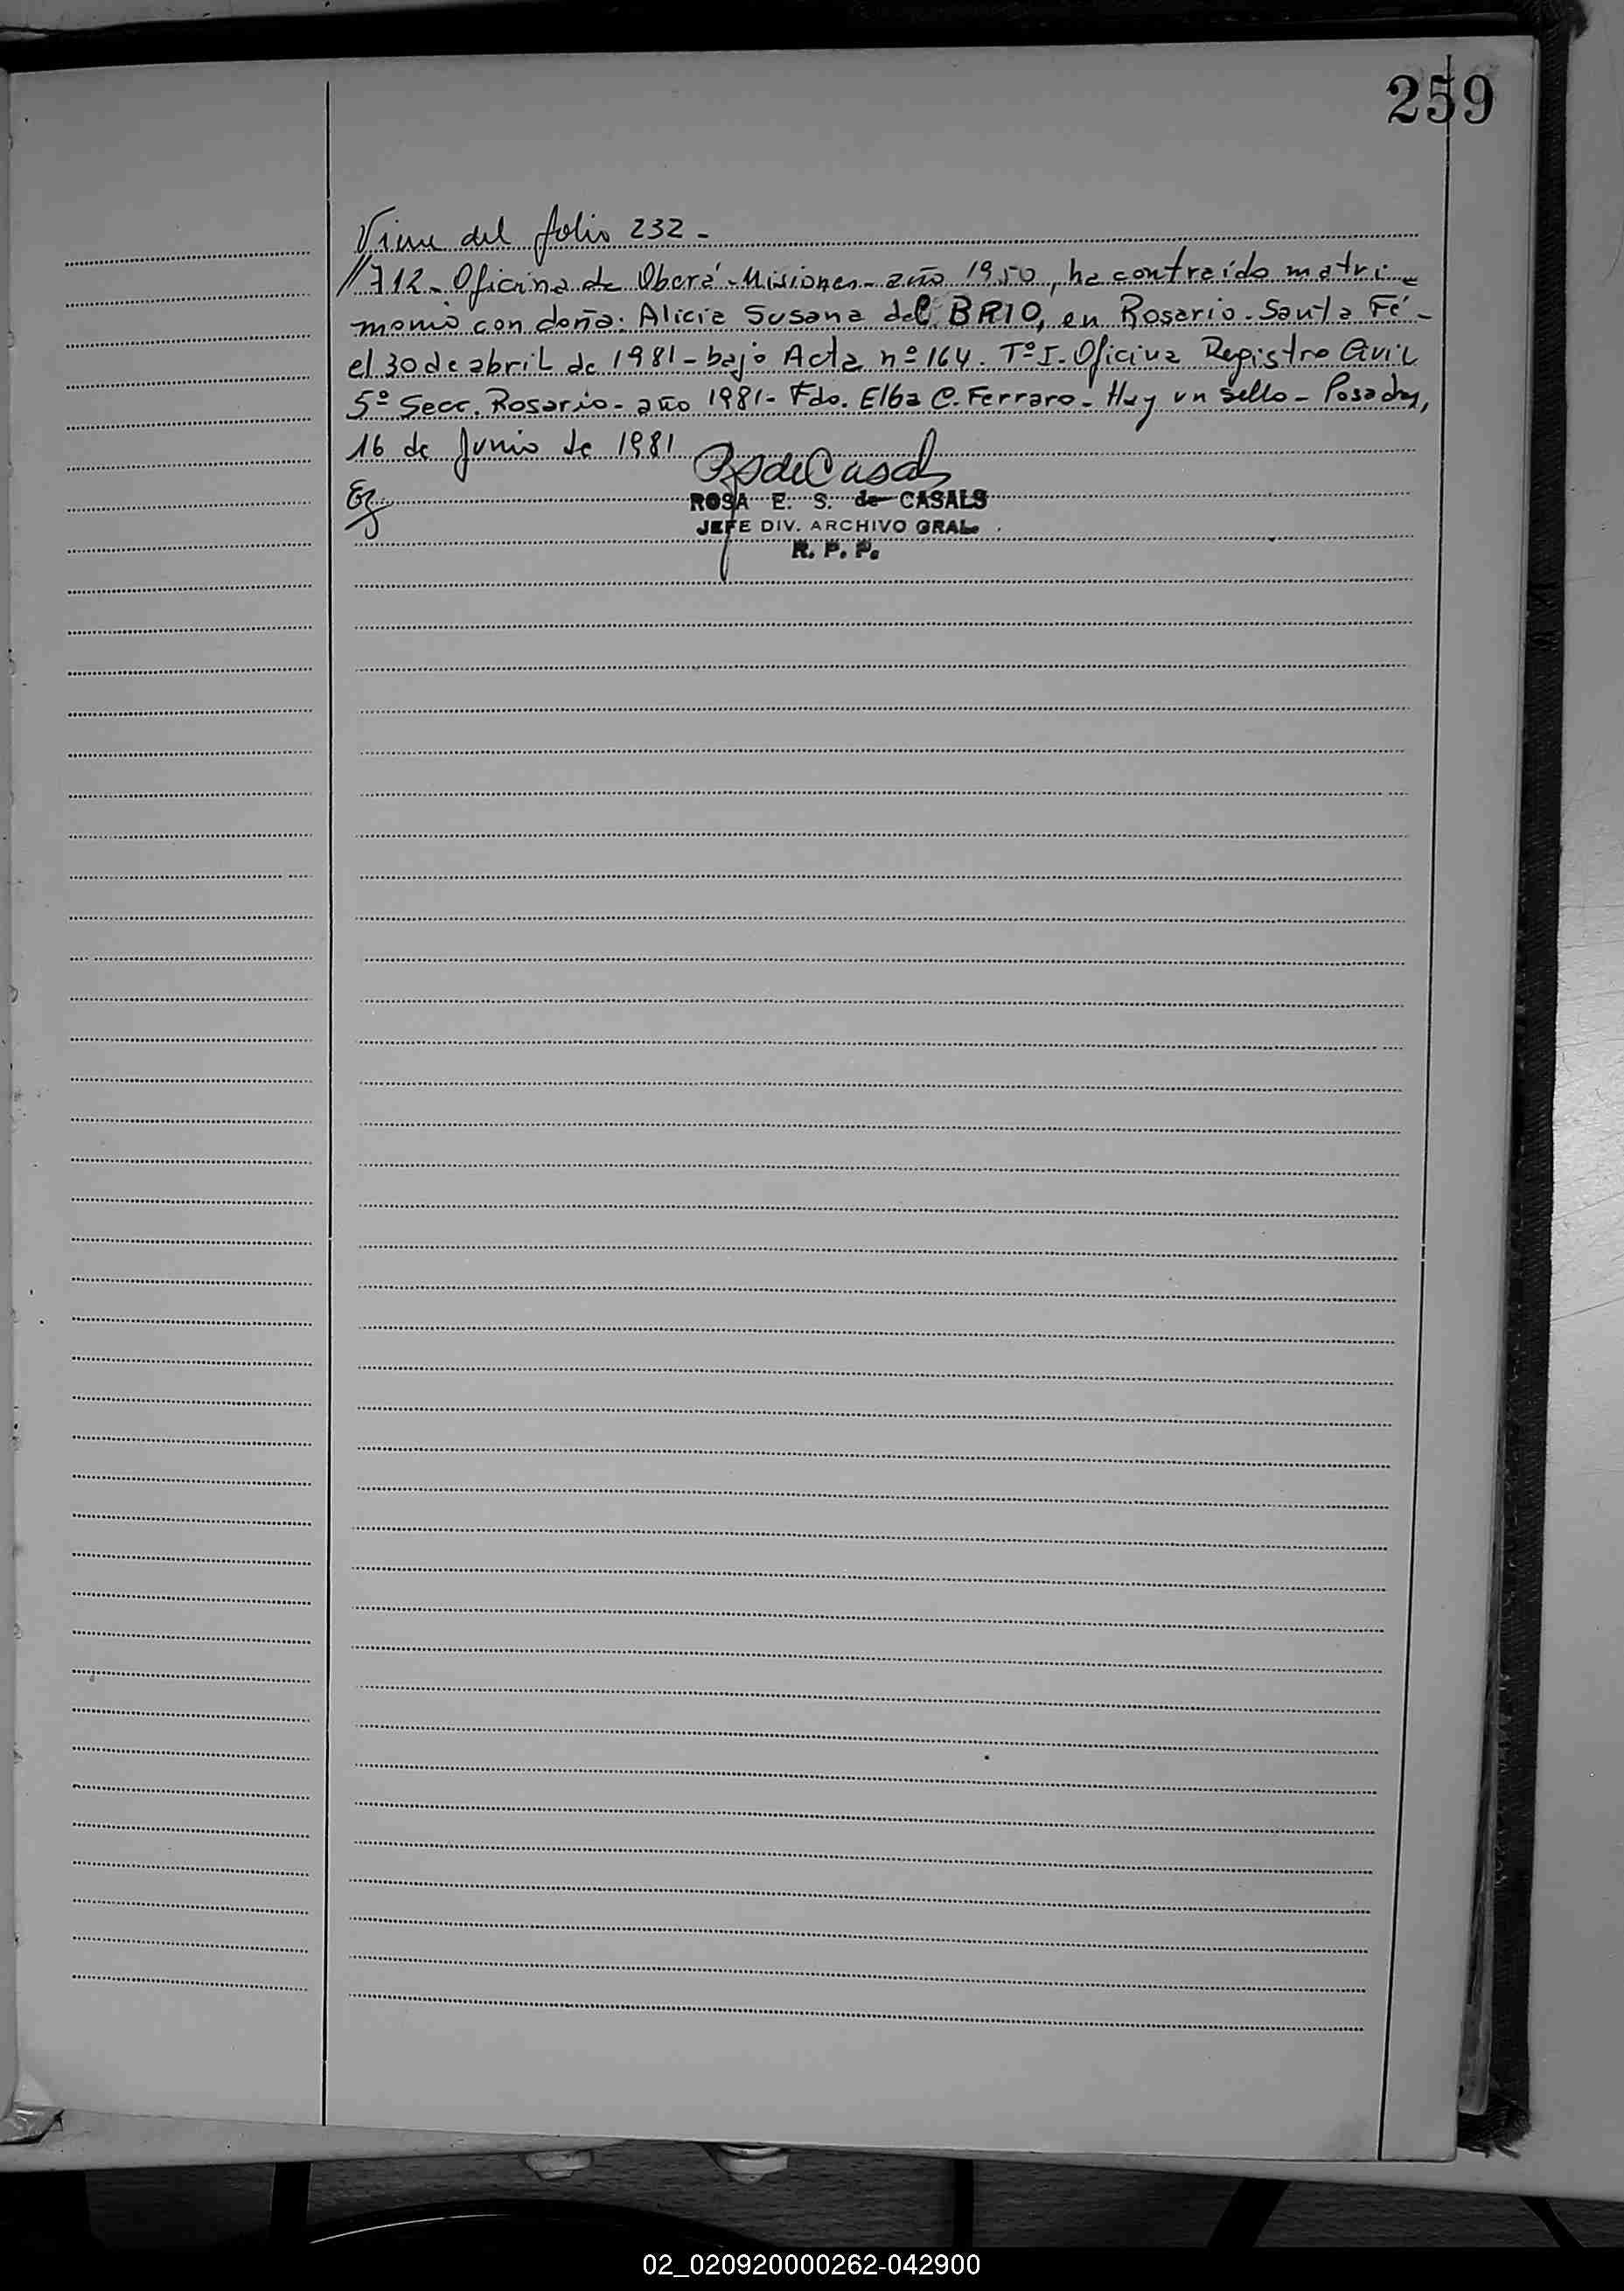 259
Viene del folio 232 -
//712 - Oficina de Oberá - Misiones - año 1950, ha contraído matri-
monio con doña: Alicia Susana del BRIO, en Rosario - Santa Fé -
el 30 de abril de 1981 - bajo Acta nº 164. Tº I - Oficina Registro Civil
5º Secc. Rosario - año 1981 - Fdo. Elba C. Ferraro - Hay un sello - Posadas,
16 de Junio de 1981
ROSA E. S. de CASALS
JEFE DIV. ARCHIVO GRAL.
R. P. P.
02_020920000262-042900